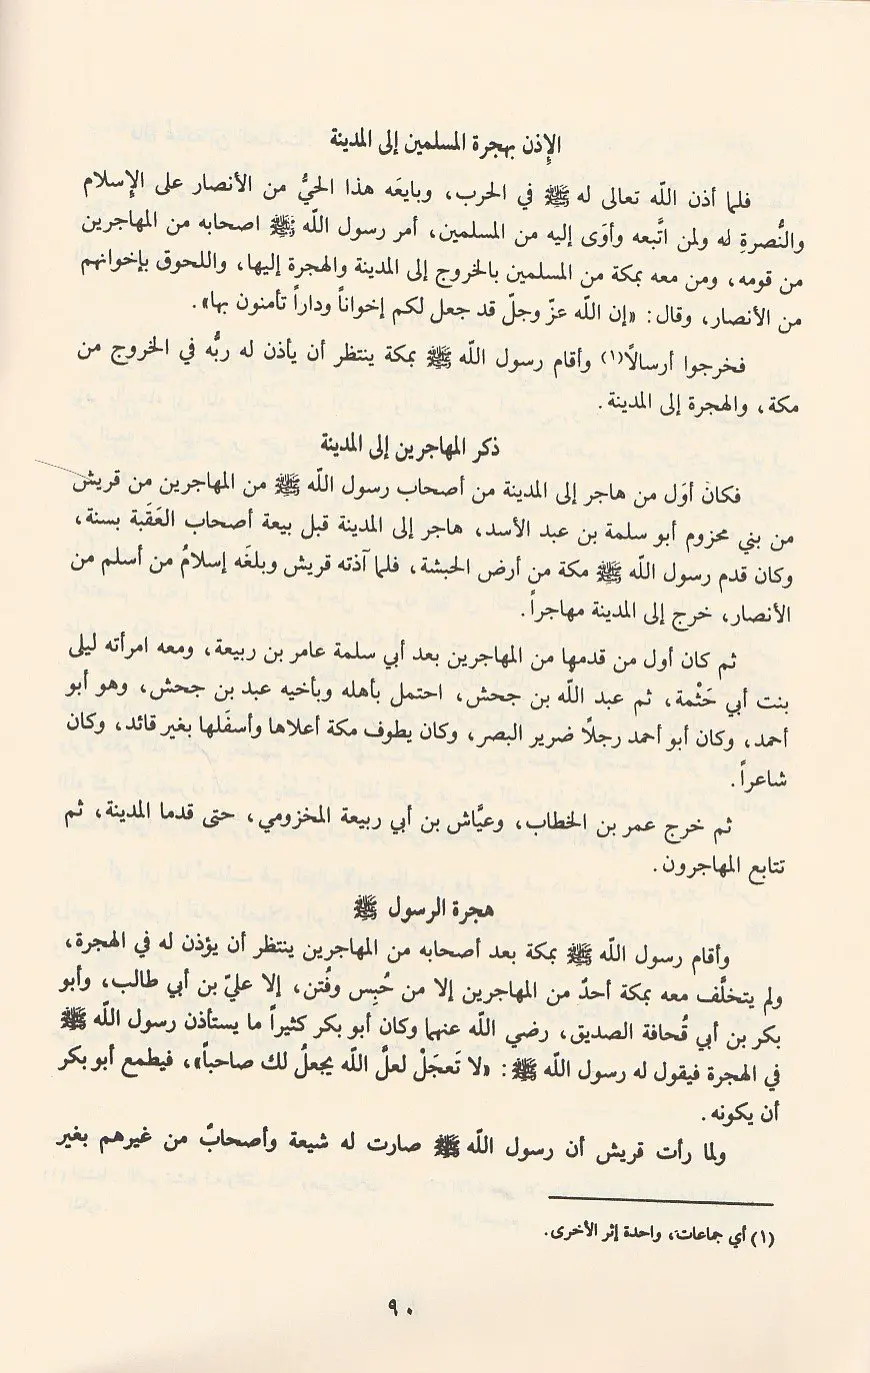 الإذن بهجرة المسلمين إلى المدينة
فلما أذن اللّه تعالى له ﷺ في الحرب، وبايعَه هذا الحيُّ من الأنصار على الإسلام
والنُّصرةِ له ولمن اتَّبعه وأوَى إليه من المسلمين، أمر رسول اللّه ﷺ اصحابه من المهاجرين
من قومه، ومن معه بمكة من المسلمين بالخروج إلى المدينة والهجرة إليها، واللحوق بإخوانهم
من الأنصار، وقال: «إن اللّه عزّ وجلّ قد جعل لكم إخواناً وداراً تأمنون بها».
فخرجوا أرسالًا(١) وأقام رسول اللّه ﷺ بمكة ينتظر أن يأذن له ربُّه في الخروج من
مكة، والهجرة إلى المدينة.
ذكر المهاجرين إلى المدينة
فكان أوَل من هاجر إلى المدينة من أصحاب رسول اللّه ﷺ من المهاجرين من قريش
من بني مخزوم أبو سلمة بن عبد الأسد، هاجر إلى المدينة قبل بيعة أصحاب العَقَبة بسنة،
وكان قدم رسول اللّه ﷺ مكة من أرض الحبشة، فلما آذته قريش وبلغَه إسلامُ من أسلم من
الأنصار، خرج إلى المدينة مهاجراً.
ثم كان أول من قدمها من المهاجرين بعد أبي سلمة عامر بن ربيعة، ومعه امرأته ليلى
بنت أبي حَثْمة، ثم عبد اللّه بن جحش، احتمل بأهله وبأخيه عبد بن جحش، وهو أبو
أحمد، وكان أبو أحمد رجلًا ضرير البصر، وكان يطوف مكة أعلاها وأسفَلها بغير قائد، وكان
شاعراً.
ثم خرج عمر بن الخطاب، وعيَّاش بن أبي ربيعة المخزومي، حتى قدما المدينة، ثم
تتابع المهاجرون.
هجرة الرسول ﷺ
وأقام رسول اللّه ﷺ بمكة بعد أصحابه من المهاجرين ينتظر أن يؤذن له في الهجرة،
ولم يتخلَّف معه بمكة أحدٌ من المهاجرين إلا من حُبِس وفُتن، إلا عليّ بن أبي طالب، وأبو
بكر بن أبي قُحافة الصديق، رضي اللّه عنهما وكان أبو بكر كثيراً ما يستأذن رسول اللّه ﷺ
في الهجرة فيقول له رسول اللّه ﷺ: «لا تَعجَلْ لعلَّ اللّه يجعلُ لك صاحباً»، فيطمع أبو بكر
أن يكونه.
ولما رأت قريش أن رسول اللّه ﷺ صارت له شيعة وأصحابٌ من غيرهم بغير
(١) أي جماعات، واحدة إثر الأخرى.
٩٠